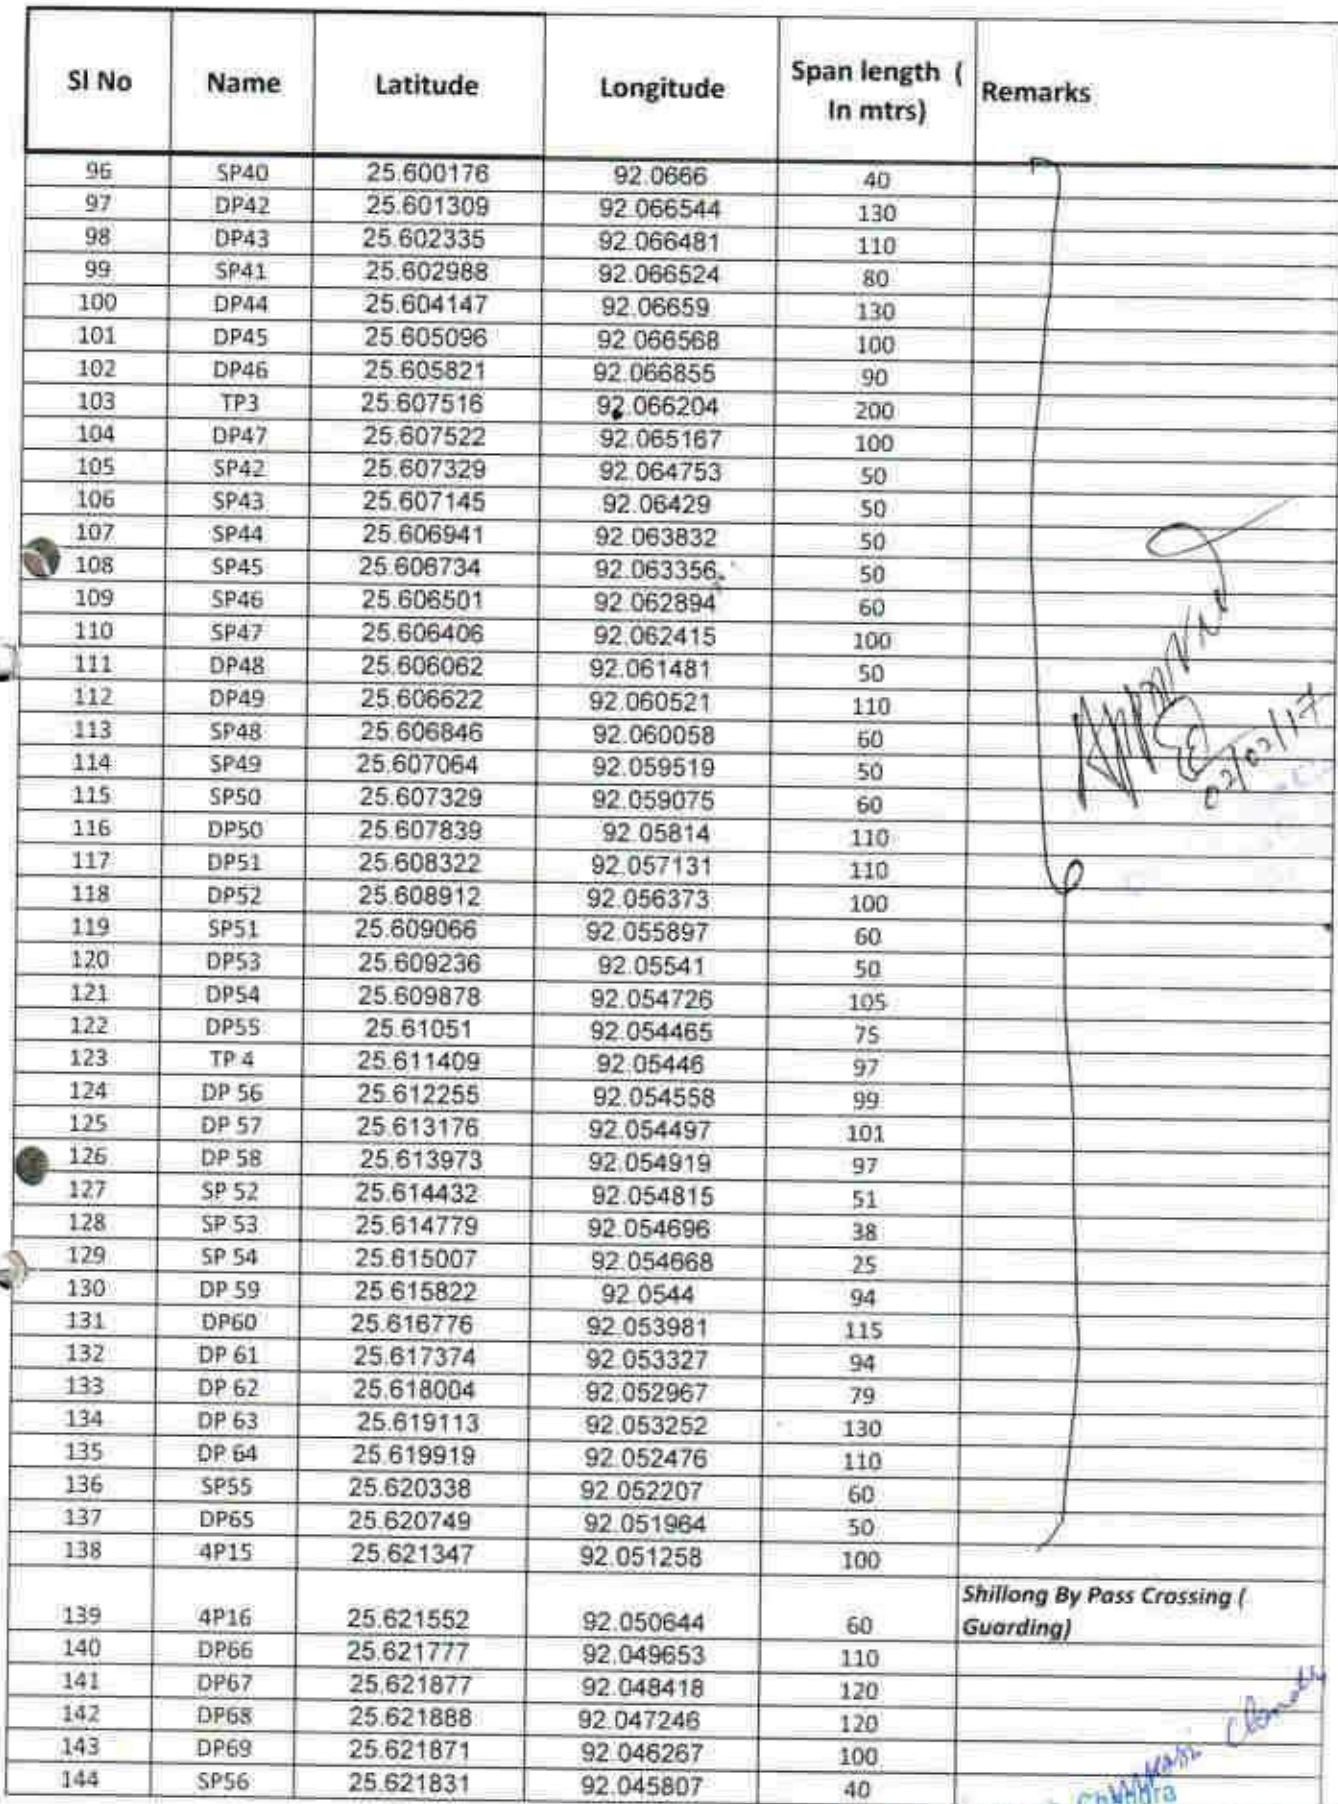 Sl No Name Latitude Longitude Span length ( In mtrs) Remarks
96 SP40 25.600176 92.0666 40
97 DP42 25.601309 92.066544 130
98 DP43 25.602335 92.066481 110
99 SP41 25.602988 92.066524 80
100 DP44 25.604147 92.06659 130
101 DP45 25.605096 92.066568 100
102 DP46 25.605821 92.066855 90
103 TP3 25.607516 92.066204 200
104 DP47 25.607522 92.065167 100
105 SP42 25.607329 92.064753 50
106 SP43 25.607145 92.06429 50
107 SP44 25.606941 92.063832 50
108 SP45 25.606734 92.063356 50
109 SP46 25.606501 92.062894 60
110 SP47 25.606406 92.062415 100
111 DP48 25.606062 92.061481 50
112 DP49 25.606622 92.060521 110
113 SP48 25.606846 92.060058 60
114 SP49 25.607064 92.059519 50
115 SP50 25.607329 92.059075 60
116 DP50 25.607839 92.05814 110
117 DP51 25.608322 92.057131 110
118 DP52 25.608912 92.056373 100
119 SP51 25.609066 92.055897 60
120 DP53 25.609236 92.05541 50
121 DP54 25.609878 92.054726 105
122 DP55 25.61051 92.054465 75
123 TP 4 25.611409 92.05446 97
124 DP 56 25.612255 92.054558 99
125 DP 57 25.613176 92.054497 101
126 DP 58 25.613973 92.054919 97
127 SP 52 25.614432 92.054815 51
128 SP 53 25.614779 92.054696 38
129 SP 54 25.615007 92.054668 25
130 DP 59 25.615822 92.0544 94
131 DP60 25.616776 92.053981 115
132 DP 61 25.617374 92.053327 94
133 DP 62 25.618004 92.052967 79
134 DP 63 25.619113 92.053252 130
135 DP 64 25.619919 92.052476 110
136 SP55 25.620338 92.052207 60
137 DP65 25.620749 92.051964 50
138 4P15 25.621347 92.051258 100
139 4P16 25.621552 92.050644 60 Shillong By Pass Crossing ( Guarding)
140 DP66 25.621777 92.049653 110
141 DP67 25.621877 92.048418 120
142 DP68 25.621888 92.047246 120
143 DP69 25.621871 92.046267 100
144 SP56 25.621831 92.045807 40
Approved